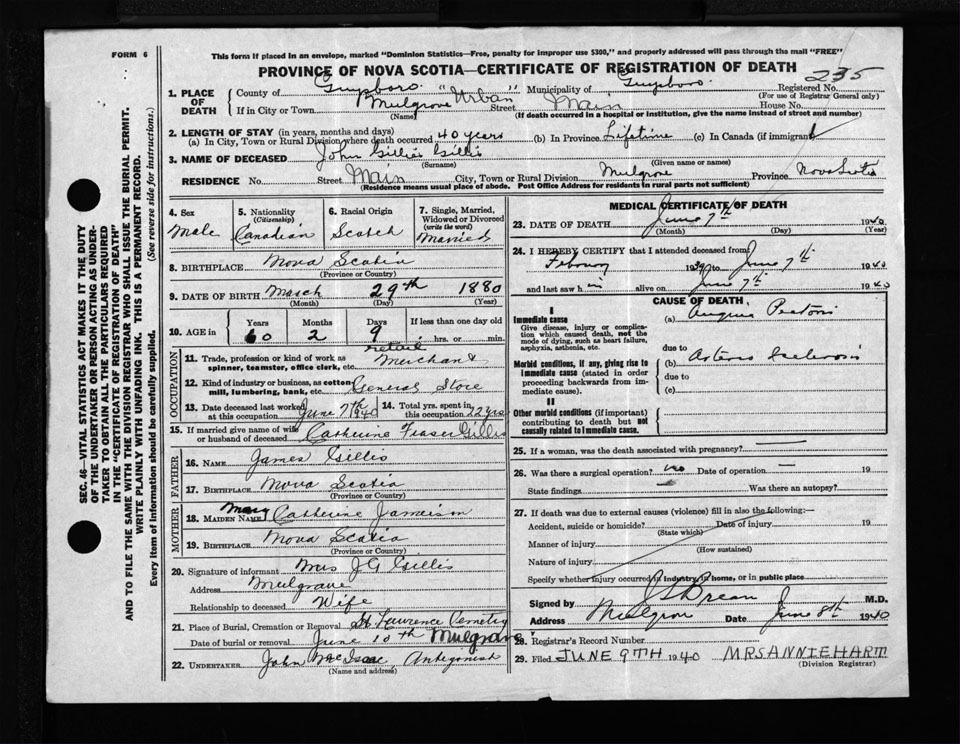 FORM 6
This form if placed in an envelope, marked "Dominion Statistics—Free, penalty for improper use $300," and properly addressed will pass through the mail "FREE"
PROVINCE OF NOVA SCOTIA—CERTIFICATE OF REGISTRATION OF DEATH
235
1. PLACE OF DEATH
County of Guysboro "Urban" Municipality of Guysboro Registered No.
(For use of Registrar General only)
If in City or Town Mulgrove Street Main House No.
(Name) (If death occurred in a hospital or institution, give the name instead of street and number)
2. LENGTH OF STAY (in years, months and days)
(a) In City, Town or Rural Division where death occurred 40 years (b) In Province Lifetime (c) In Canada (if immigrant)
3. NAME OF DECEASED John Gillis Gillis
(Surname) (Given name or names)
RESIDENCE No. Street Main City, Town or Rural Division Mulgrove Province Nova Scotia
(Residence means usual place of abode. Post Office Address for residents in rural parts not sufficient)
4. Sex
Male
5. Nationality (Citizenship)
Canadian
6. Racial Origin
Scotch
7. Single, Married, Widowed or Divorced (write the word)
Married
8. BIRTHPLACE Nova Scotia
(Province or Country)
9. DATE OF BIRTH March 29th 1880
(Month) (Day) (Year)
10. AGE in
Years Months Days If less than one day old
60 2 9 hrs. or min.
OCCUPATION
11. Trade, profession or kind of work as spinner, teamster, office clerk, etc. retail Merchant
12. Kind of industry or business, as cotton mill, lumbering, bank, etc. General Store
13. Date deceased last worked at this occupation June 7th 1940
14. Total yrs. spent in this occupation 22 yrs
15. If married give name of wife or husband of deceased Catherine Fraser Gillis
FATHER
16. NAME James Gillis
17. BIRTHPLACE Nova Scotia
(Province or Country)
MOTHER
18. MAIDEN NAME Mary Catherine Jameison
19. BIRTHPLACE Nova Scotia
(Province or Country)
20. Signature of informant Mrs J G Gillis
Address Mulgrave
Relationship to deceased Wife
21. Place of Burial, Cremation or Removal St Lawrence Cemetery
Date of burial or removal June 10th Mulgrave
22. UNDERTAKER John McIsaac, Antigonish
(Name and address)
MEDICAL CERTIFICATE OF DEATH
23. DATE OF DEATH June 7th 1940
(Month) (Day) (Year)
24. I HEREBY CERTIFY that I attended deceased from
1939 to June 7th 1940
and last saw h im alive on June 7th 1940
CAUSE OF DEATH
I
Immediate cause
Give disease, injury or complication which caused death, not the mode of dying, such as heart failure, asphyxia, asthenia, etc.
(a) Angina
due to
Morbid conditions, if any, giving rise to immediate cause (stated in order proceeding backwards from immediate cause).
(b)
due to
(c)
II
Other morbid conditions (if important) contributing to death but not causally related to immediate cause.
25. If a woman, was the death associated with pregnancy? —
26. Was there a surgical operation? no Date of operation — 19
State findings — Was there an autopsy?
27. If death was due to external causes (violence) fill in also the following:—
Accident, suicide or homicide? Date of injury 19
(State which)
Manner of injury
(How sustained)
Nature of injury
Specify whether injury occurred in industry, in home, or in public place
Signed by M.D.
Address Date June 8th 1940
28. Registrar's Record Number
29. Filed JUNE 9TH 1940 MRS ANNIE HART
(Division Registrar)
SEC. 46—VITAL STATISTICS ACT MAKES IT THE DUTY
OF THE UNDERTAKER OR PERSON ACTING AS UNDERTAKER
TO OBTAIN ALL THE PARTICULARS REQUIRED
IN THE "CERTIFICATE OF REGISTRATION OF DEATH"
AND TO FILE THE SAME WITH THE DIVISION REGISTRAR WHO SHALL ISSUE THE BURIAL PERMIT.
WRITE PLAINLY WITH UNFADING INK. THIS IS A PERMANENT RECORD.
Every item of information should be carefully supplied. (See reverse side for instructions.)